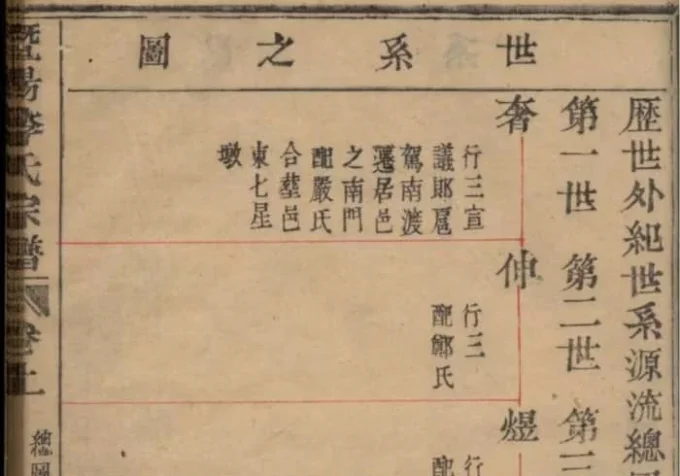 世系之圖
歴世外紀世系源流總
第一世 第二世 第三
奢
行三宣
議郎扈
駕南渡
遷居邑
之南門
配嚴氏
合塟邑
東七星
墩
伸
行三
配鄭氏
煜
行
配
暨陽李氏宗譜 卷
總圖